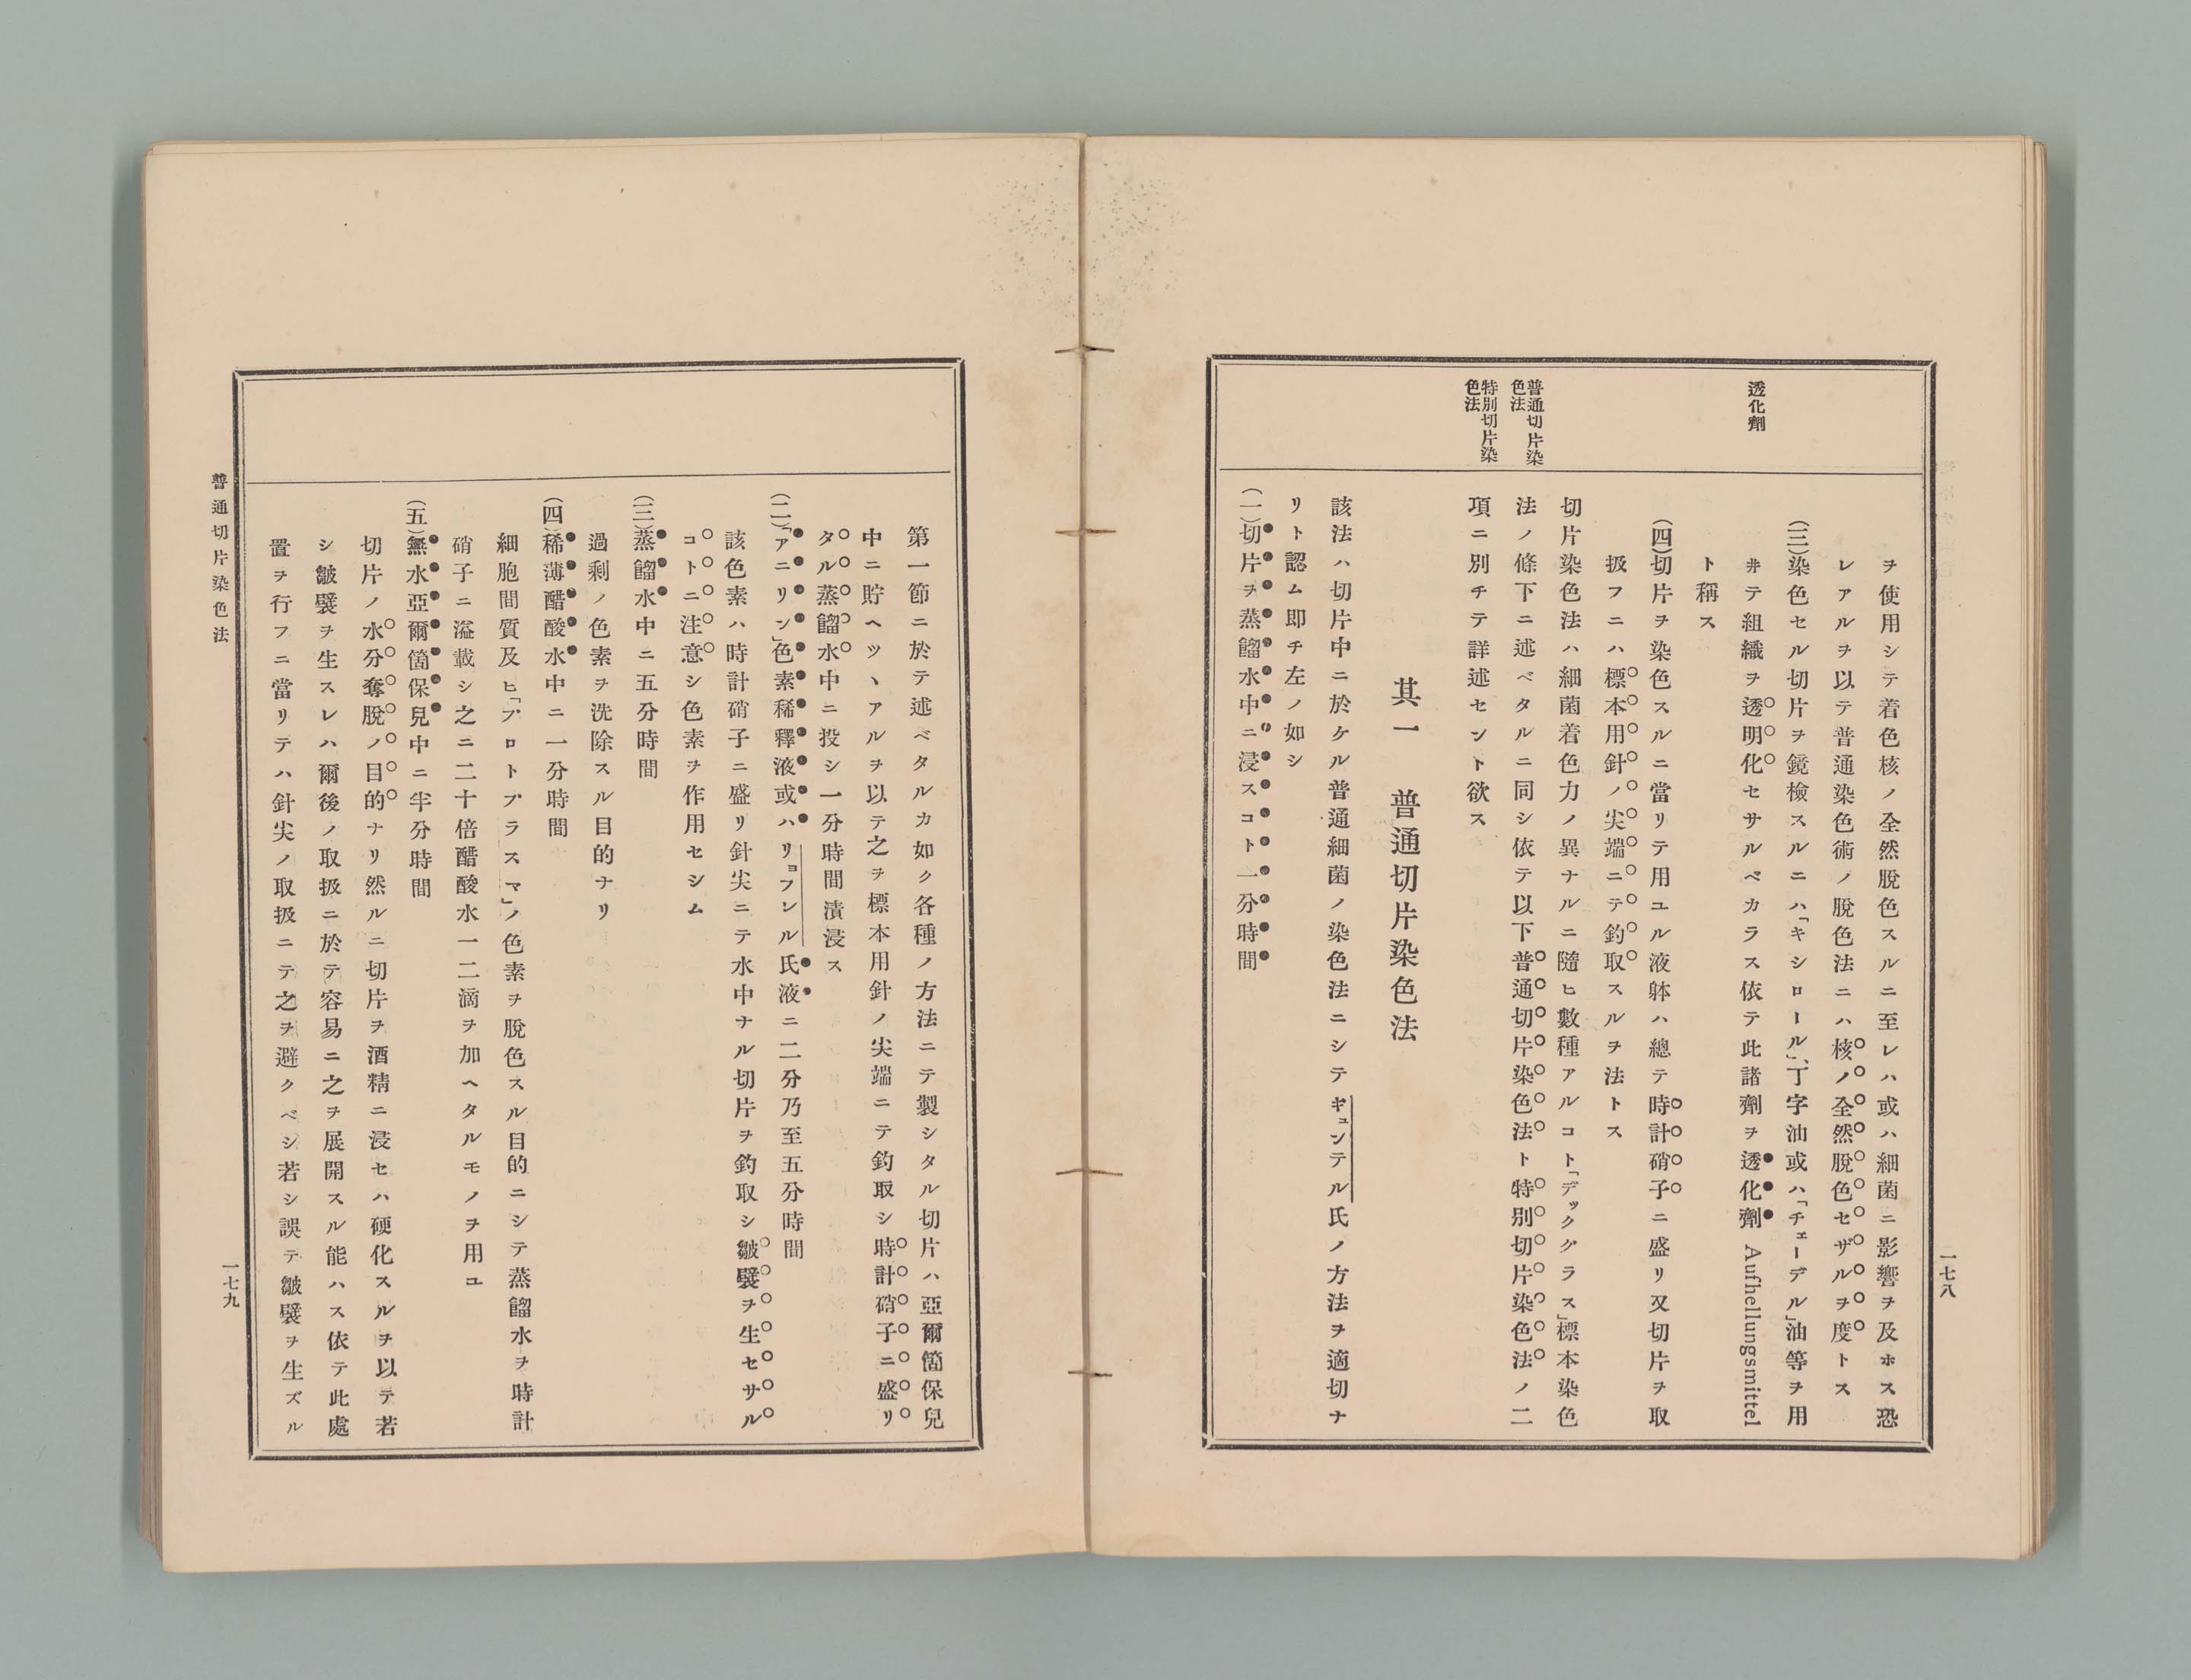 透化劑
普通切片染
色法
特別切片染
色法
ヲ使用シテ着色核ノ全然脫色スルニ至レハ或ハ細菌ニ影響ヲ及ホス恐
レアルヲ以テ普通染色術ノ脫色法ニハ核ノ全然脫色セザルヲ度トス
(三)染色セル切片ヲ鏡檢スルニハ「キシロール」、丁字油或ハ「チェーデル」油等ヲ用
井テ組織ヲ透明化セサルベカラス依テ此諸劑ヲ透化劑 Aufhellungsmittel
ト稱ス
(四)切片ヲ染色スルニ當リテ用ユル液躰ハ總テ時計硝子ニ盛リ又切片ヲ取
扱フニハ標本用針ノ尖端ニテ釣取スルヲ法トス
切片染色法ハ細菌着色力ノ異ナルニ隨ヒ數種アルコト「デックグラス」標本染色
法ノ條下ニ述ベタルニ同シ依テ以下普通切片染色法ト特別切片染色法ノ二
項ニ別チテ詳述セント欲ス
其一 普通切片染色法
該法ハ切片中ニ於ケル普通細菌ノ染色法ニシテキュンテル氏ノ方法ヲ適切ナ
リト認ム即チ左ノ如シ
(一)切片ヲ蒸餾水中ニ浸スコト一分時間
一七八
第一節ニ於テ述ベタルカ如ク各種ノ方法ニテ製シタル切片ハ亞爾箇保兒
中ニ貯ヘツヽアルヲ以テ之ヲ標本用針ノ尖端ニテ釣取シ時計硝子ニ盛リ
タル蒸餾水中ニ投シ一分時間漬浸ス
(二)「アニリン」色素稀釋液或ハリョフレル氏液ニ二分乃至五分時間
該色素ハ時計硝子ニ盛リ針尖ニテ水中ナル切片ヲ釣取シ皺襞ヲ生セサル
コトニ注意シ色素ヲ作用セシム
(三)蒸餾水中ニ五分時間
過剩ノ色素ヲ洗除スル目的ナリ
(四)稀薄醋酸水中ニ一分時間
細胞間質及ヒ「プロトプラスマ」ノ色素ヲ脫色スル目的ニシテ蒸餾水ヲ時計
硝子ニ溢載シ之ニ二十倍醋酸水一二滴ヲ加ヘタルモノヲ用ユ
(五)無水亞爾箇保兒中ニ半分時間
切片ノ水分奪脫ノ目的ナリ然ルニ切片ヲ酒精ニ浸セハ硬化スルヲ以テ若
シ皺襞ヲ生スレハ爾後ノ取扱ニ於テ容易ニ之ヲ展開スル能ハス依テ此處
置ヲ行フニ當リテハ針尖ノ取扱ニテ之ヲ避クベシ若シ誤テ皺襞ヲ生ズル
普通切片染色法
一七九